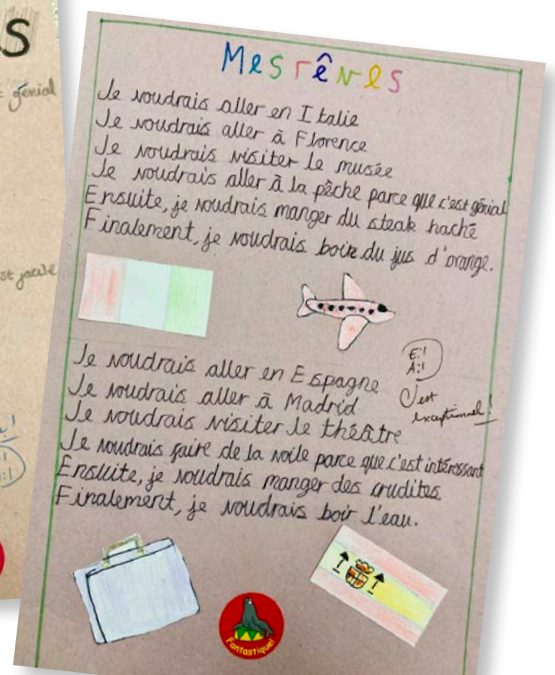 s
génial
st facile
Mes rêves
Je voudrais aller en Italie
Je voudrais aller à Florence
Je voudrais visiter le musée
Je voudrais aller à la pêche parce que c'est génial
Ensuite, je voudrais manger du steak haché
Finalement, je voudrais boire du jus d'orange.
E:1
A:1
C'est
exceptionnel!
Je voudrais aller en Espagne
Je voudrais aller à Madrid
Je voudrais visiter le théâtre
Je voudrais faire de la voile parce que c'est intéressant
Ensuite, je voudrais manger des crudites
Finalement, je voudrais boir l'eau.
fantastique!